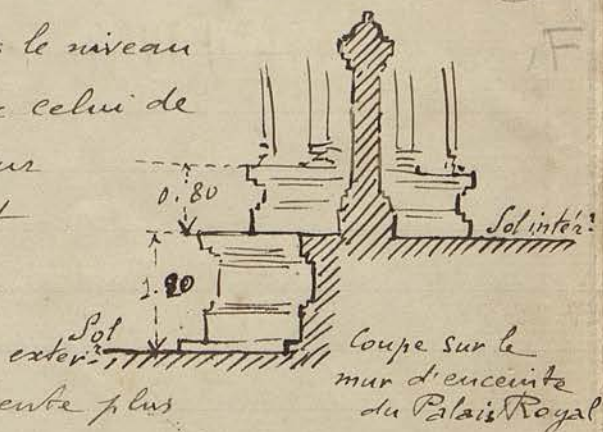 le niveau
celui de
F
0.80
Sol intér.
1.20
Sol
extér.
Coupe sur le
mur d'enceinte
du Palais Royal
ente plus